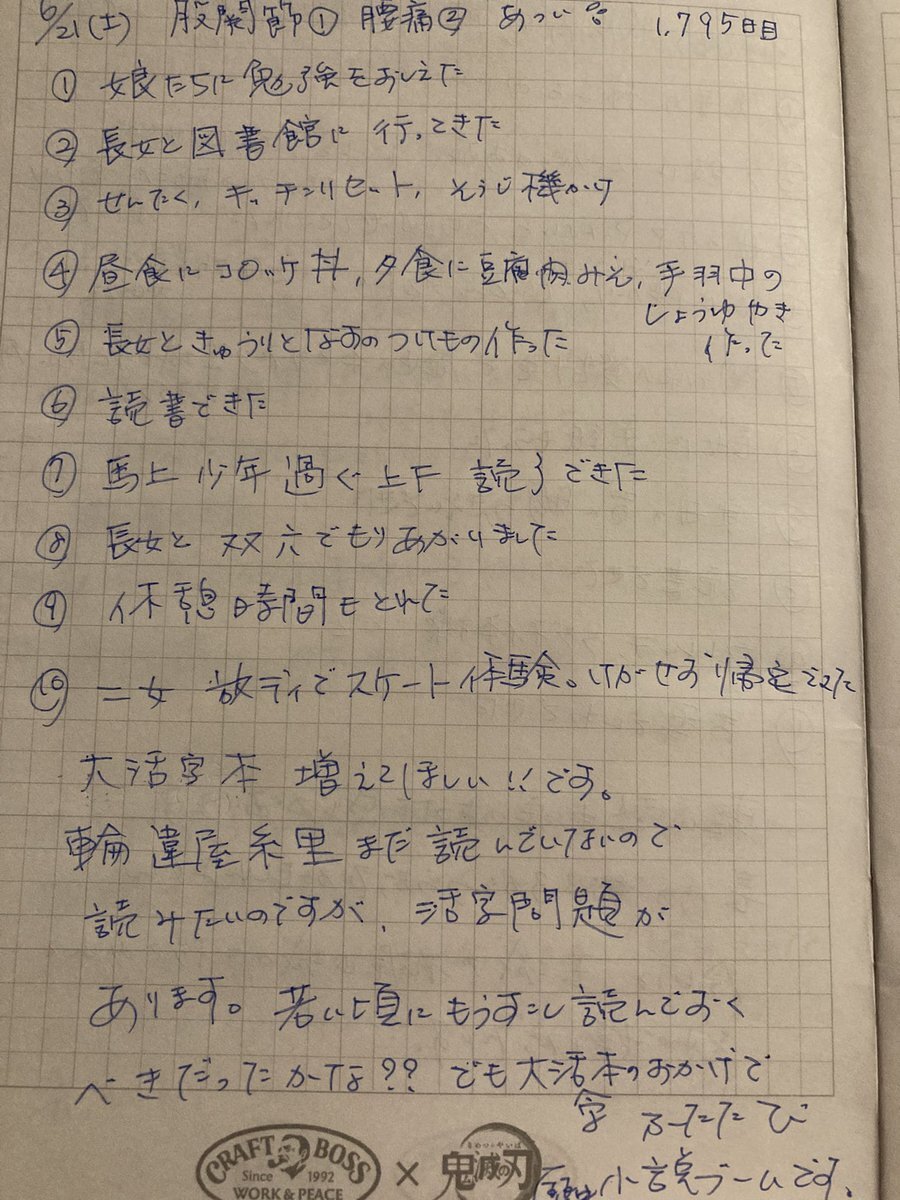 6/21(土) 股関節① 腰痛② あつい 1,795日目
① 娘たちに勉強をおしえた
② 長女と図書館に行ってきた
③ せんたく、キッチンリセット、そうじ機かけ
④ 昼食にコロッケ丼、夕食に豆腐肉みそ、手羽中の
しょうゆやき
作った
⑤ 長女ときゅうりとなすのつけもの作った
⑥ 読書できた
⑦ 馬上少年過ぐ上下 読了できた
⑧ 長女と双六でもりあがりました
⑨ 休憩時間もとれた
⑩ 二女 放デイでスケート体験。けがせず帰宅できた
大活字本 増えてほしい!!です。
輪違屋糸里まだ読んでいないので
読みたいのですが、活字問題が
あります。若い頃にもうすこし読んでおく
べきだったかな?? でも大活字本のおかげで
ふたたび
小説ブームです。
CRAFT BOSS
Since 1992
WORK & PEACE
×
きめつのやいば
鬼滅の刃